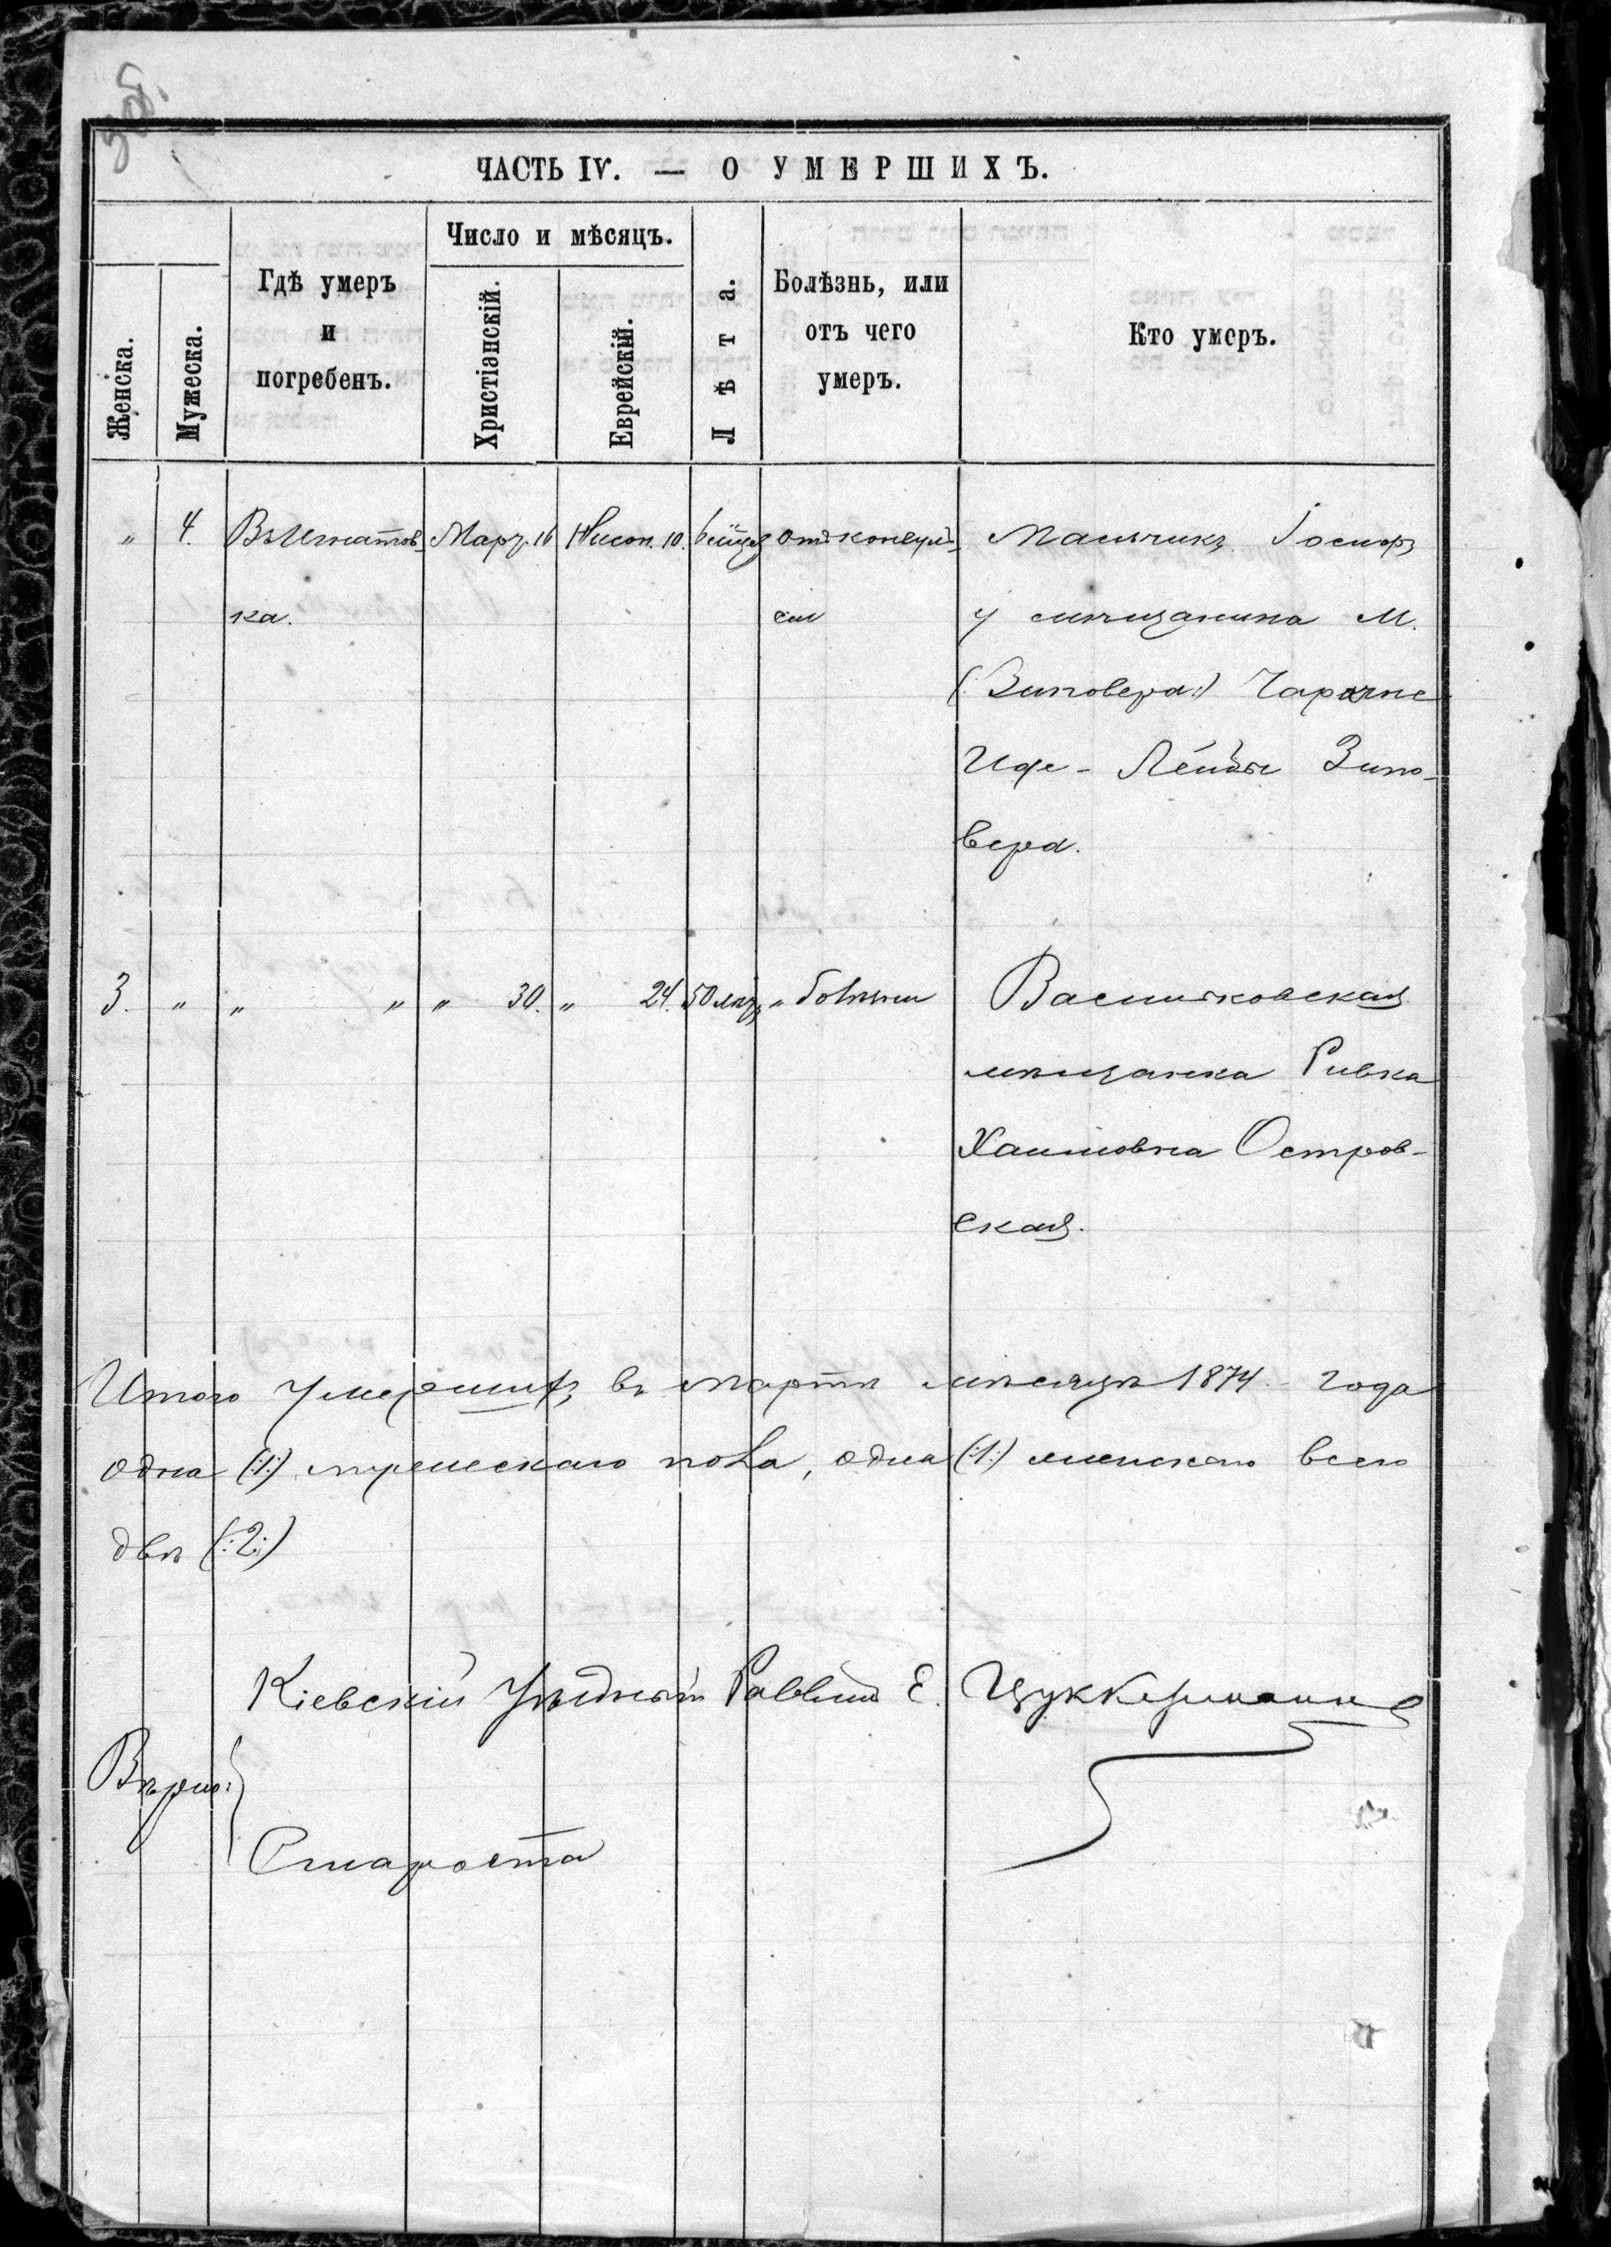 3об.
ЧАСТЬ IV. — О УМЕРШИХЪ.
Женска.
Мужеска.
Гдѣ умеръ
и
погребенъ.
Число и мѣсяцъ.
Христіанскій.
Еврейскій.
Лѣта.
Болѣзнь, или
отъ чего
умеръ.
Кто умеръ.
„ 4. Въ Игнатов- Март. 16 Нисон. 10. отъ конвул- Мальчикъ Іосифъ
ка. сіи у мѣщанина М.
(:Зиновера:)
Лейбы Зино-
вера.
3. „ „ „ „ 30. „ 24. 50 лѣтъ „ болѣзни Васильковская
мѣщанка Ривка
Хаимовна Остров-
ская.
Итого умершихъ въ мартѣ мѣсяцѣ 1874 года
одна (:1:) мужескаго пола, одна (:1:) женскаго всего
двѣ (:2:)
Кіевскій Уѣздный Раввинъ Е. Цуккерманъ
Вѣрно:
Староста